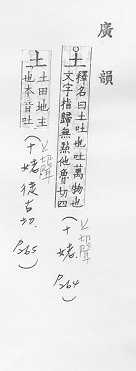 廣韻
土
釋名曰土吐也吐萬物也
文字指歸無點他魯切四
上聲
(十姥. P264)
土
土田地主
也本音吐
上聲
(十姥徒古切. P265)